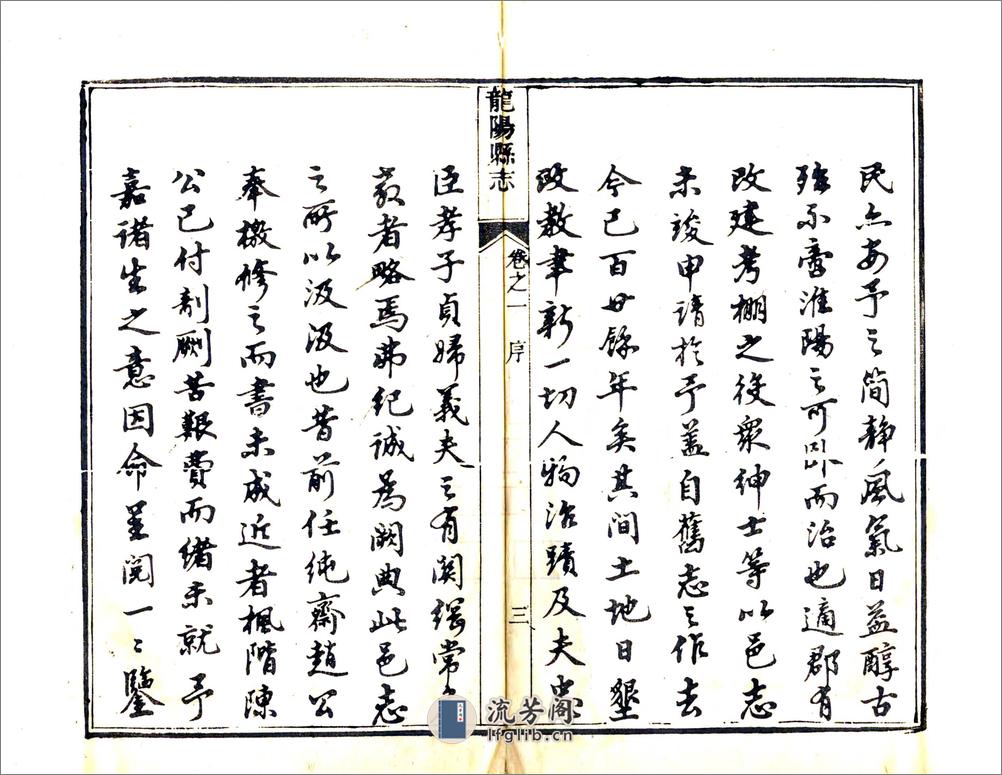 民亦安予之簡靜風氣日益醇古
殆不啻淮陽之可臥而治也適郡有
改建考棚之役眾紳士等以邑志
未竣申請於予蓋自舊志之作去
今已百廿餘年矣其間土地日墾
政教聿新一切人物治蹟及夫忠
龍陽縣志
卷之一 序
三
臣孝子貞婦義夫之有関綱常
教者略焉弗紀誠爲闕典此邑志
之所以汲汲也昔前任純齋趙公
奉檄修之而書未成近者楓階陳
公已付剞劂苦艱費而緒未就予
嘉諸生之意因命呈閱一〻鑒
流芳阁
lfglib.cn